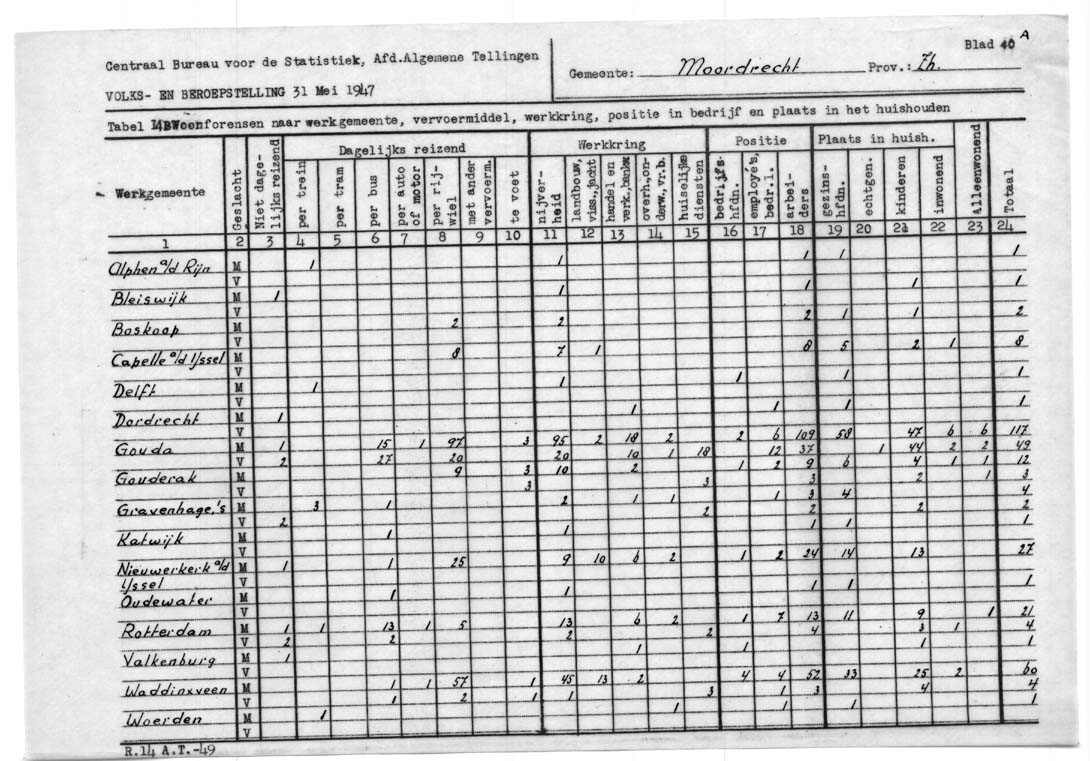 Blad 40 A
Centraal Bureau voor de Statistiek, Afd.Algemene Tellingen
Gemeente: Moordrecht Prov.: Zh.
VOLKS- EN BEROEPSTELLING 31 Mei 1947
Tabel 14B Woonforensen naar werkgemeente, vervoermiddel, werkkring, positie in bedrijf en plaats in het huishouden
Werkgemeente Geslacht Niet dagelijks reizend Dagelijks reizend Werkkring Positie Plaats in huish. Alleenwonend Totaal
per trein per tram per bus per auto of motor per rijwiel met ander vervoerm. te voet nijverheid landbouw, viss., jacht handel en verk., bankw. overh. onderw., vr. b. huiselijke diensten bedrijfshfdn. employé's, bedr. l. arbeiders gezinshfdn. echtgen. kinderen inwonend
1 2 3 4 5 6 7 8 9 10 11 12 13 14 15 16 17 18 19 20 21 22 23 24
Alphen a/d Rijn M 1 1 1 1 1
V
Bleiswijk M 1 1 1 1 1
V
Boskoop M 2 2 2 1 1 2
V
Capelle a/d IJssel M 8 7 1 8 5 2 1 8
V
Delft M 1 1 1 1 1
V
Dordrecht M 1 1 1 1 1
V
Gouda M 1 15 1 97 3 95 2 18 2 2 6 109 58 47 6 6 117
V 2 27 20 20 10 1 18 12 37 1 44 2 2 49
Gouderak M 9 3 10 2 1 2 9 6 4 1 1 12
V 3 3 3 2 1 3
Gravenhage,'s M 3 1 2 1 1 1 3 4 4
V 2 2 2 2 2
Katwijk M 1 1 1 1 1
V
Nieuwerkerk a/d M 1 1 25 9 10 6 2 1 2 24 14 13 27
IJssel V
Oudewater M 1 1 1 1 1
V
Rotterdam M 1 1 13 1 5 13 6 2 1 7 13 11 9 1 21
V 2 2 2 2 4 3 1 4
Valkenburg M 1 1 1 1 1
V
Waddinxveen M 1 1 57 1 45 13 2 4 4 52 33 25 2 60
V 1 2 1 1 3 1 3 4 4
Woerden M 1 1 1 1 1
V
R.14 A.T.-49